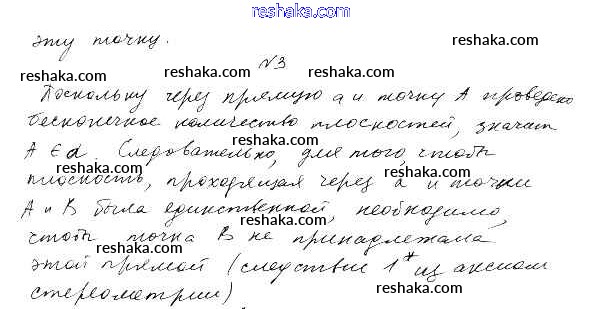 www.reshaka.com
reshaka.com
эту точку.
№3
reshaka.com reshaka.com
Поскольку через прямую a и точку A проведено
reshaka.com reshaka.com
бесконечное количество плоскостей, значит
reshaka.com
A ∈ a. Следовательно, для того, чтобы
reshaka.com reshaka.com
плоскость, проходящая через a и точки
reshaka.com
A и B была единственной, необходимо,
reshaka.com reshaka.com
чтобы точка B не принадлежала
reshaka.com
этой прямой (следствие 1* из аксиом
reshaka.com reshaka.com
стереометрии)